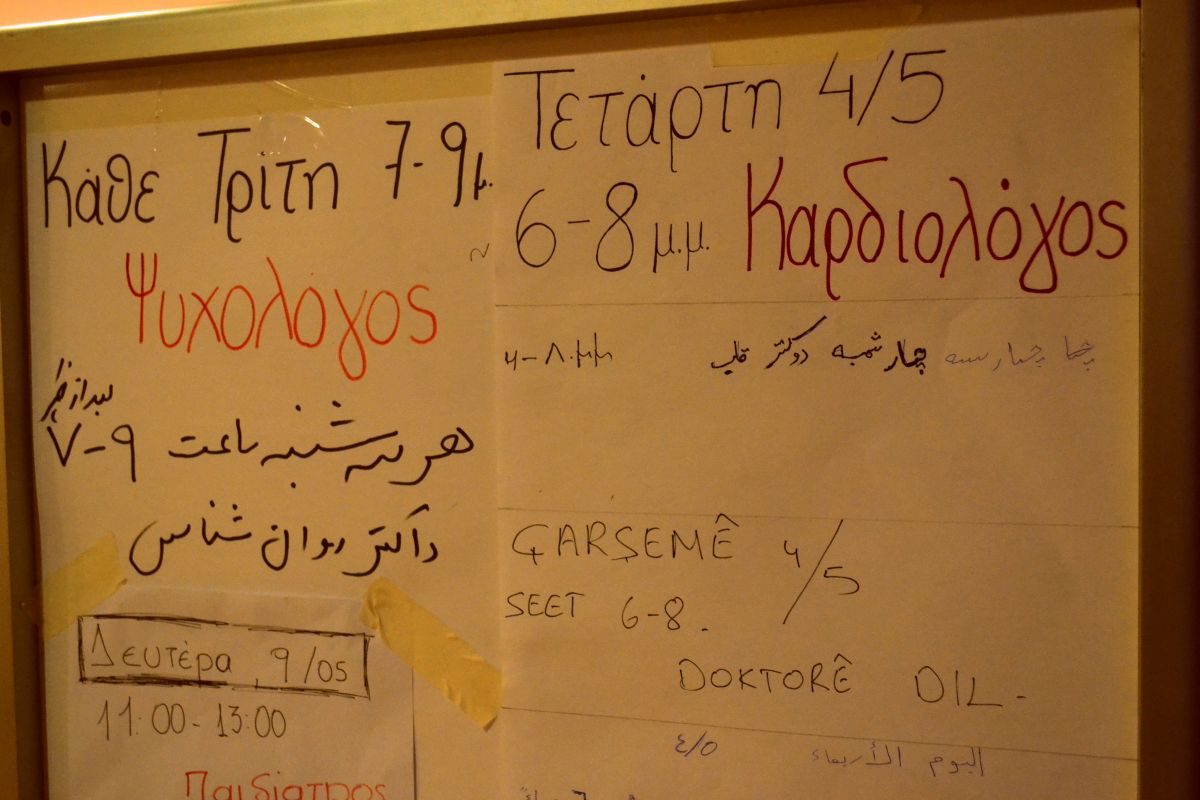 Κάθε Τρίτη 7-9μ.
Ψυχολόγος
بعد از ظهر
هر سه شنبه ساعت ۷-۹
داکتر روان شناس
Δευτέρα, 9/05
11:00-13:00
Παιδίατρος
Τετάρτη 4/5
6-8 μ.μ. Καρδιολόγος
چهار شمبه دوکتر قلب
ÇARŞEMÊ 4/5
SEET 6-8.
DOKTORÊ DIL-
اليوم الأربعاء ٤/٥